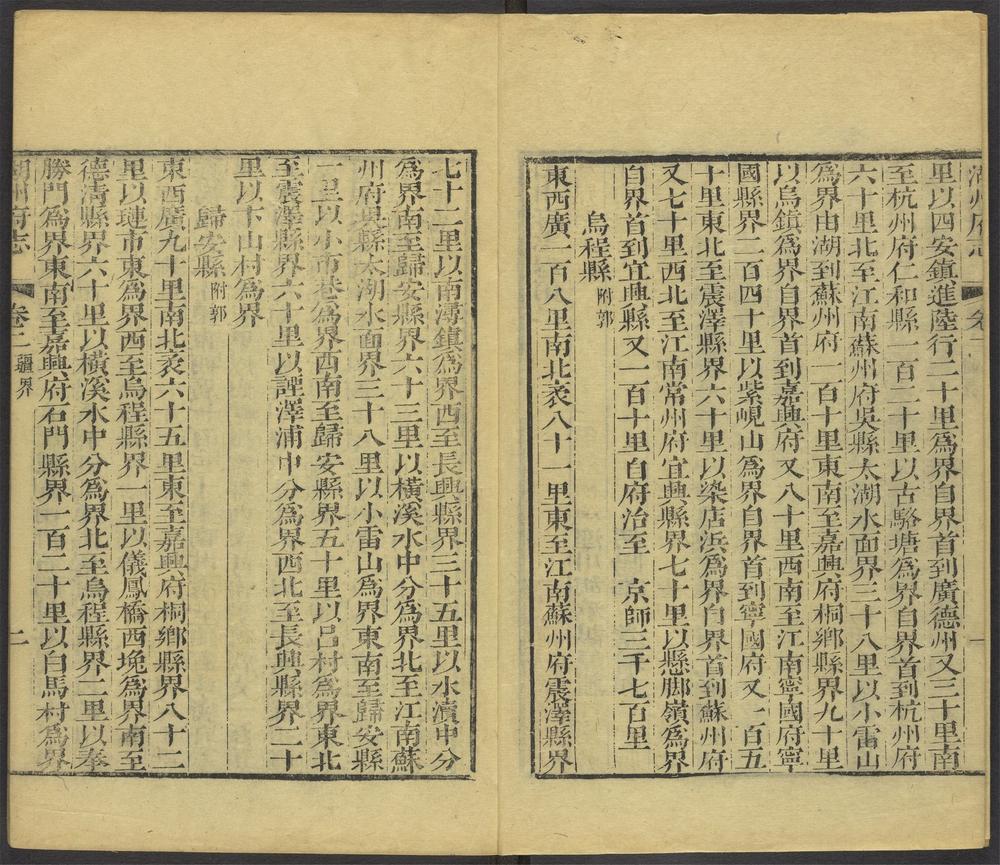 里以四安鎮進陸行二十里爲界自界首到廣德州又三十里南
至杭州府仁和縣一百二十里以古駱塘爲界自界首到杭州府
六十里北至江南蘇州府吳縣太湖水面界三十八里以小雷山
爲界由湖到蘇州府一百十里東南至嘉興府桐鄉縣界九十里
以烏鎮爲界自界首到嘉興府又八十里西南至江南寧國府寧
國縣界二百四十里以紫峴山爲界自界首到寧國府又一百五
十里東北至震澤縣界六十里以染店浜爲界自界首到蘇州府
又七十里西北至江南常州府宜興縣界七十里以懸脚嶺爲界
自界首到宜興縣又一百十里自府治至 京師三千七百里
烏程縣 附郭
東西廣一百八里南北袤八十一里東至江南蘇州府震澤縣界
七十二里以南潯鎮爲界西至長興縣界三十五里以水瀆中分
爲界南至歸安縣界六十三里以橫溪水中分爲界北至江南蘇
州府吳縣太湖水面界三十八里以小雷山爲界東南至歸安縣
一里以小市巷爲界西南至歸安縣界五十里以呂村爲界東北
至震澤縣界六十里以諢澤浦中分爲界西北至長興縣界二十
里以卞山村爲界
歸安縣 附郭
東西廣九十里南北袤六十五里東至嘉興府桐鄉縣界八十二
里以璉市東爲界西至烏程縣界一里以儀鳳橋西堍爲界南至
德清縣界六十里以橫溪水中分爲界北至烏程縣界二里以奉
勝門爲界東南至嘉興府石門縣界一百二十里以白馬村爲界
湖州府志 卷二 疆界 二